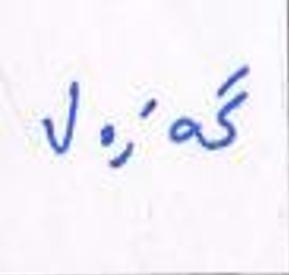 گەزەل